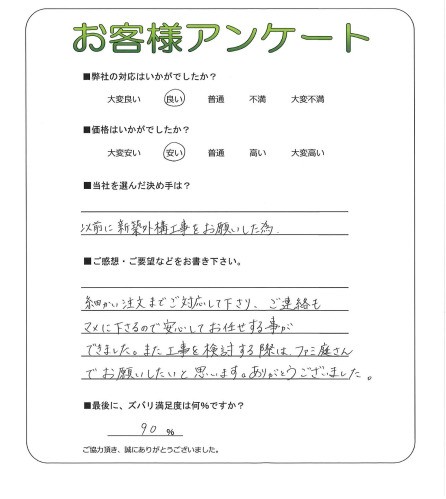 お客様アンケート
■弊社の対応はいかがでしたか？
大変良い 良い 普通 不満 大変不満
■価格はいかがでしたか？
大変安い 安い 普通 高い 大変高い
■当社を選んだ決め手は？
以前に新築外構工事をお願いした為.
■ご感想・ご要望などをお書き下さい。
細かい注文までご対応して下さり、ご連絡も
マメに下さるので安心してお任せする事が
できました。また工事を検討する際は、ファミ庭さん
でお願いしたいと思います。ありがとうございました。
■最後に、ズバリ満足度は何%ですか？
90 %
ご協力頂き、誠にありがとうございました。